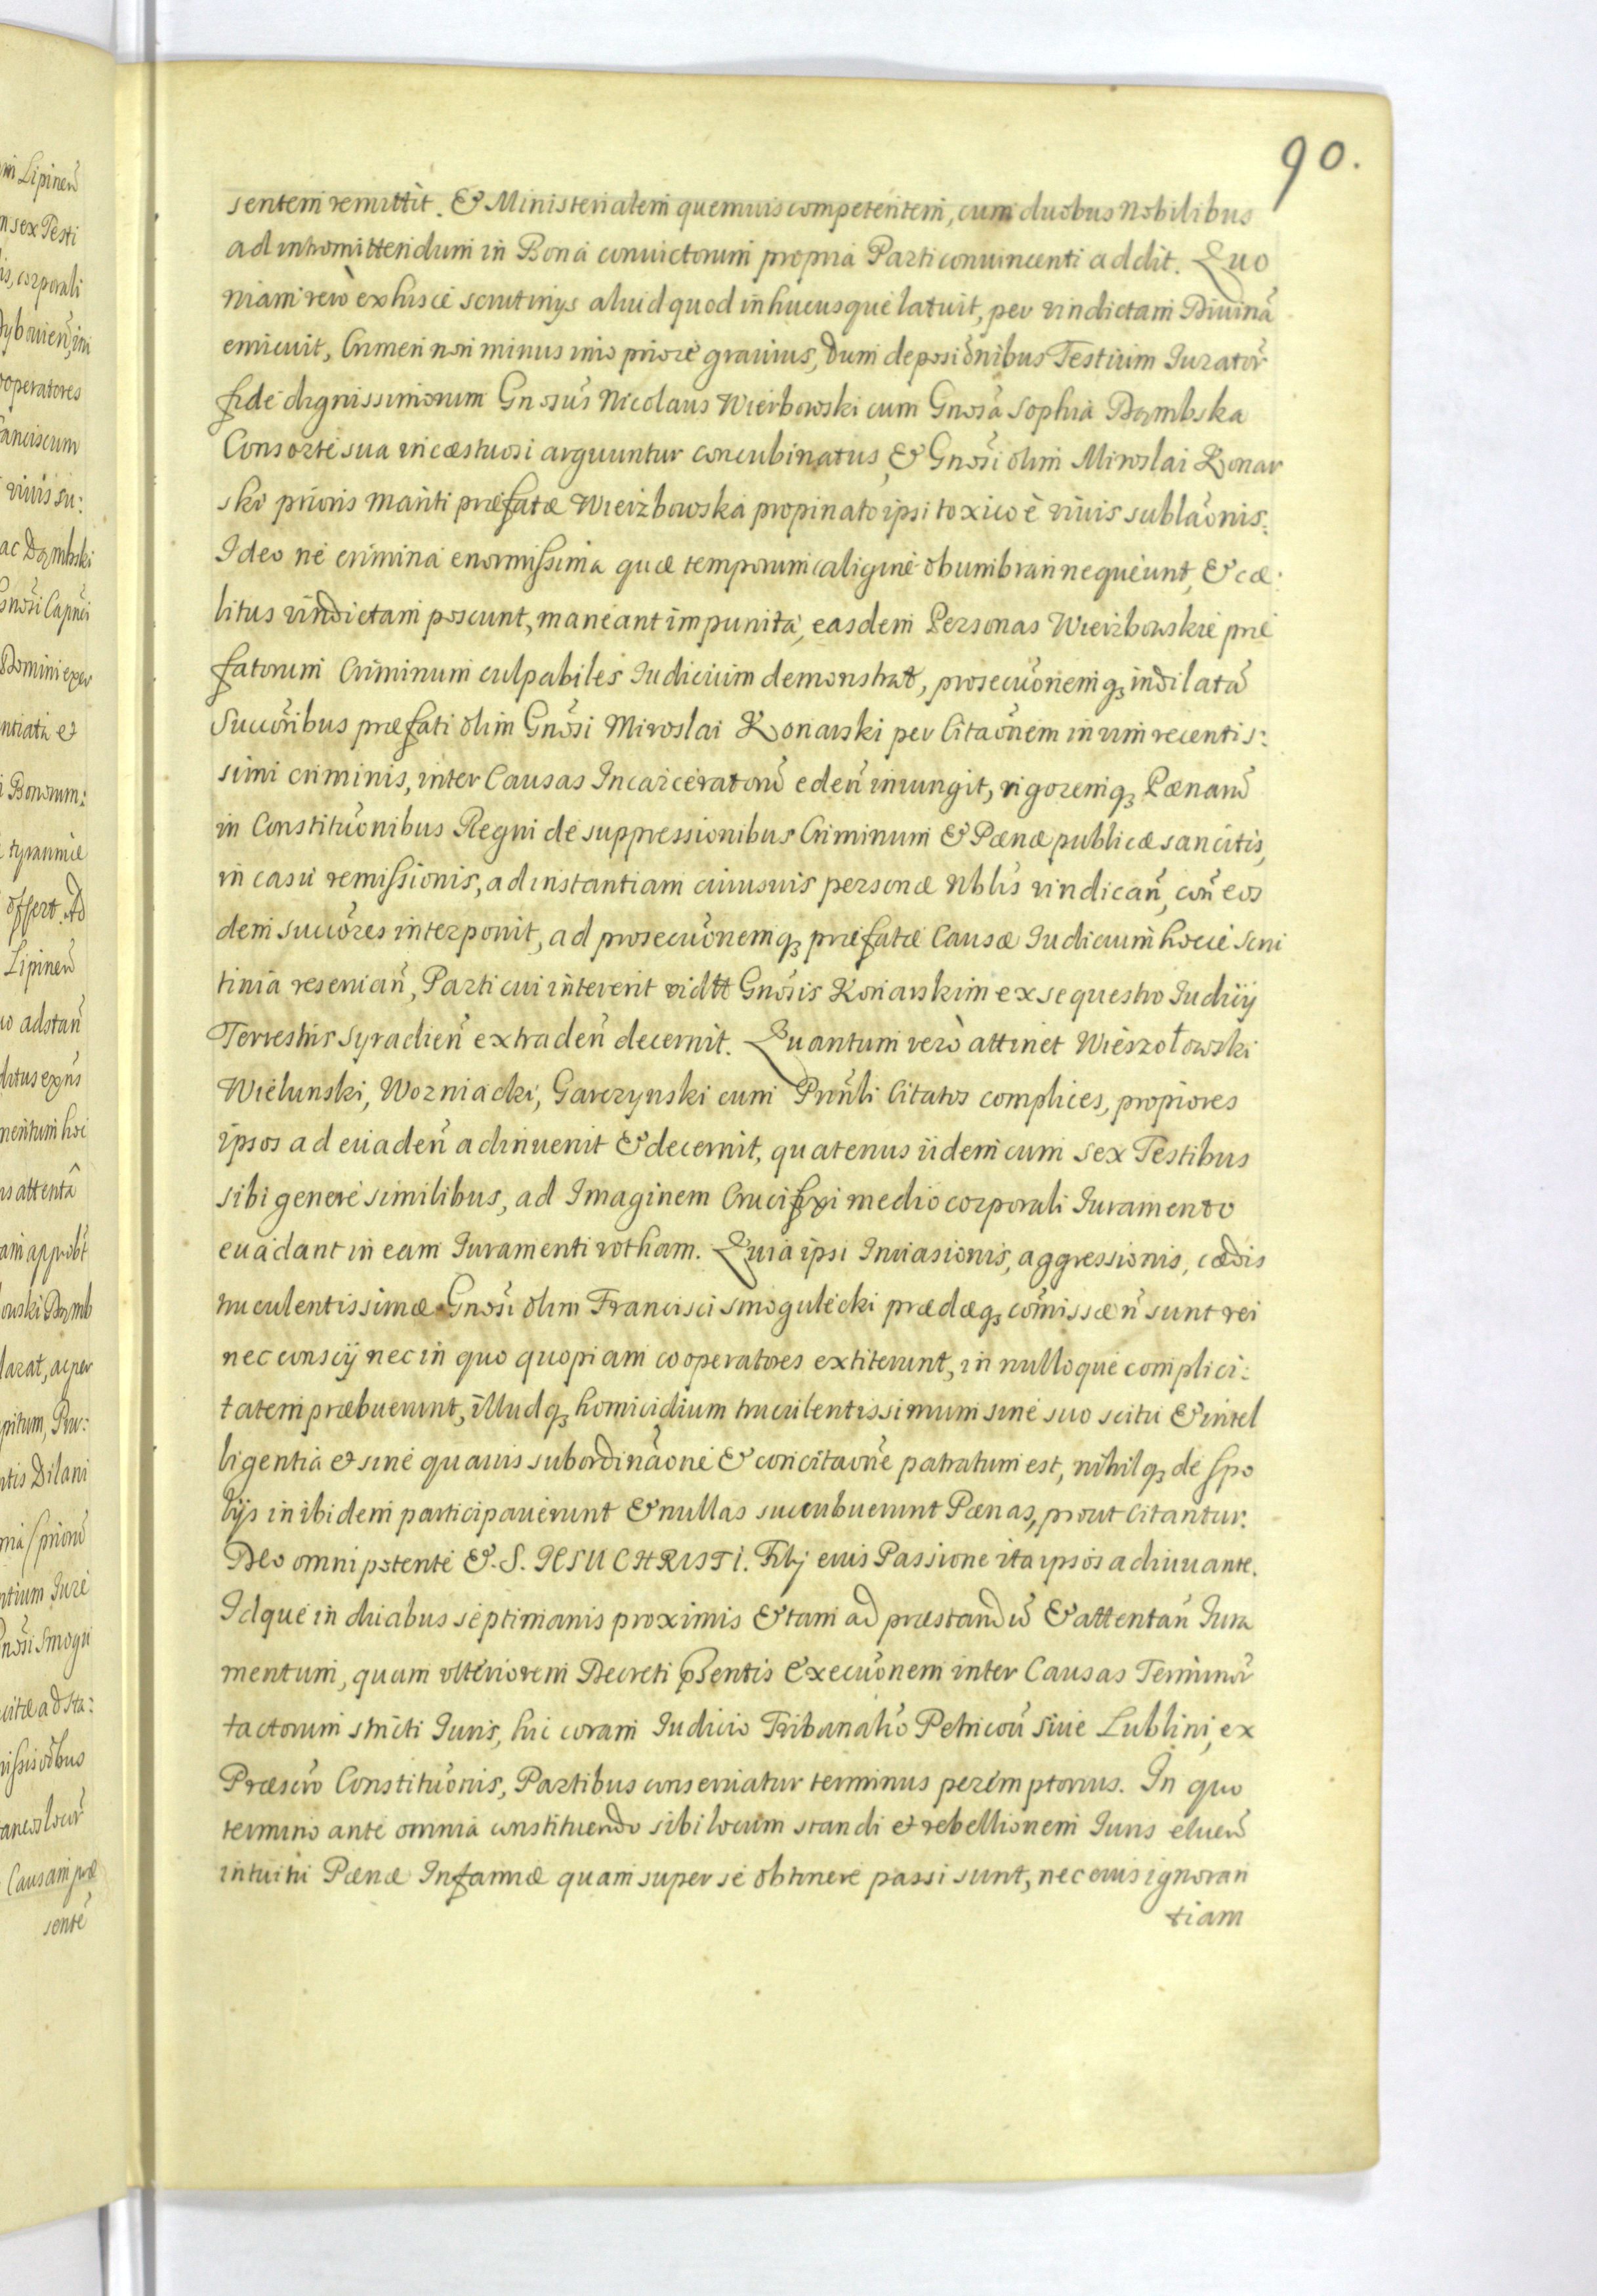 90.
sentem remittit. & Ministerialem quemuis competentem, cum duobus Nobilibus
ad intromittendum in Bona conuictorum propria Parti conuincenti addit. Quo
niam vero ex hisce scrutinijs aliud quod in hucusque latuit, per vindictam Diuinã
emicuit, Crimen non minus imo priore grauius, dum deposiõnibus Testium Iurator̃
fide dignissimorum Gnosus Nicolaus Wierbowski cum Gnosa Sophia Dąmbska
Consorte sua incæstuosi arguuntur concubinatus, & Gnosi olim Miroslai Konar
ski prioris mariti præfatæ Wierzbowska propinato ipsi toxico è viuis sublãonis.
Ideo ne crimina enormissima quæ temporum caligine obumbrari nequeunt, & cæ:
litus vindictam poscunt, maneant impunita, easdem Personas Wierzbowskie præ
fatorum Criminum culpabiles Iudicium demonstrat, prosecuõnemq; indilatã
Succõribus præfati olim Gnõsi Miroslai Konarski per Citaõnem in vim recentis:
simi criminis, inter Causas Incarceratorũ edeñ iniungit, rigoremq; Pænarũ
in Constituõnibus Regni de suppressionibus Criminum & Pænæ publicæ sancitis,
in casu remissionis, ad instantiam cuiusuis personæ Nblis vindicañ, coñ eos
dem succõres interponit, ad prosecuõnemq; præfatæ Causæ Iudicium hocce scru
tinia reseruañ, Parti cui intererit vidtt Gnõsis Konarskim ex sequestro Iudicij
Terrestris Syradieñ extradeñ decernit. Quantum verò attinet Wieszołowski
Wielunski, Wozniacki, Garczynski cum Prinĉli Citatos complices, propiores
ipsos ad euadeñ adinuenit & decernit, quatenus ijdem cum sex Testibus
sibi genere similibus, ad Imaginem Crucifixi medio corporali Iuramento
euadant in eam Iuramenti rotham. Quia ipsi Inuasionis, aggressionis, cædis
truculentissimæ Gnosi olim Francisci Smogulecki prædæq; cõmissæ ñ sunt rei
nec conscij nec in quo quopiam cooperatores extiterunt, in nulloque complici:
tatem præbuerunt, illudq; homicidium truculentissimum sine suo scitu & intel
ligentia et sine quauis subordinãone & concitaõne patratum est, nihilq; de spo
lijs inibidem participauerunt & nullas succubuerunt Pænas, prout Citantur.
Deo omnipotente & S. IESU CHRISTI. Filij eius Passione ita ipsos adiuuante.
Idque in duabus septimanis proximis & tam ad præstandũ & attentañ Iura
mentum, quam vlteriorem Decreti pntis Execuõnem inter Causas Terminor̃
tactorum stricti Iuris, hic coram Iudicio Tribunaliõ Petricoũ siue Lublini, ex
Præscro Constituõnis, Partibus conseruatur terminus peremptorius. In quo
termino ante omnia constituendo sibi locum standi et rebellionem Iuris eluerũ
intuitu Pænæ Infamiæ quam super se obtinere passi sunt, nec eius ignoran
tiam